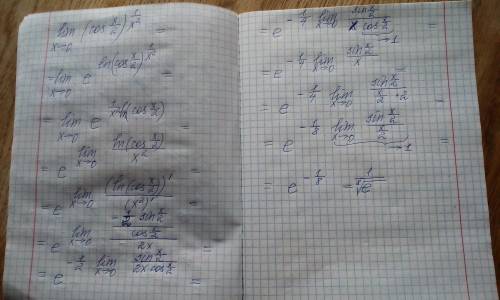 lim (cos x/2)^(1/x²) =
x→0
= lim e^(ln(cos x/2)^(1/x²)) =
x→0
= lim e^(1/x² ln(cos x/2)) =
x→0
= e^(lim x→0 ln(cos x/2)/x²) =
= e^(lim x→0 (ln(cos x/2))'/(x²)') =
= e^(lim x→0 (-1/2 sin x/2 / cos x/2)/2x) =
= e^(-1/2 lim x→0 sin x/2 / 2x cos x/2) =
= e^(-1/4 lim x→0 sin x/2 / x cos x/2 →1) =
= e^(-1/4 lim x→0 sin x/2 / x) =
= e^(-1/4 lim x→0 sin x/2 / (x/2 · 2)) =
= e^(-1/8 lim x→0 sin x/2 / x/2 →1) =
= e^(-1/8) = 1/⁸√e